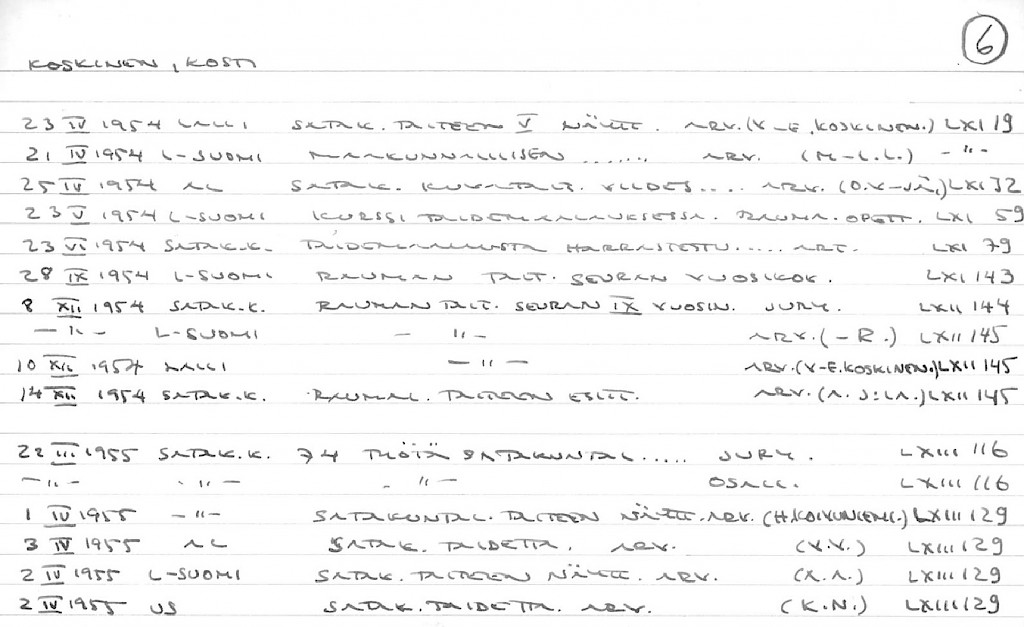 6
KOSKINEN, KOSTI
23 IV 1954 LALLI SATAK. TAITEEN V NÄYTT. ARV. (Y-E, KOSKINEN.) LXI 19
21 IV 1954 L-SUOMI MAAKUNNALLISEN ....... ARV. (M-L.L.) -"-
25 IV 1954 AL SATAK. KUVATAIT. VIIDES.... ARV. (O.V-JA,) LXI 32
23 V 1954 L-SUOMI KURSSI TAIDEMAALAUKSESSA. RAUMA. OPETT. LXI 59
23 VI 1954 SATAK.K. TAIDEMAALAUSTA HARRASTETTU..... ART. LXI 79
28 IX 1954 L-SUOMI RAUMAN TAIT. SEURAN VUOSIKOK. LXI 143
8 XII 1954 SATAK.K. RAUMAN TAIT. SEURAN IX VUOSIN. JURY. LXII 144
-"- L-SUOMI -"- ARV. (-R.) LXII 145
10 XII 1954 LALLI -"- ARV. (Y-E.KOSKINEN.) LXII 145
14 XII 1954 SATAK.K. RAUMAL. TAITEEN ESITT. ARV. (A. J:LA.) LXII 145
22 III 1955 SATAK.K. 74 TYÖTÄ SATAKUNTAL..... JURY. LXIII 116
-"- -"- -"- OSALL. LXIII 116
1 IV 1955 -"- SATAKUNTAL. TAITEEN NÄYTT. ARV. (H.KOIVUNIEMI.) LXIII 129
3 IV 1955 AL SATAK. TAIDETTA. ARV. (V.V.) LXIII 129
2 IV 1955 L-SUOMI SATAK. TAITEEN NÄYTT. ARV. (A.A.) LXIII 129
2 IV 1955 US SATAK. TAIDETTA. ARV. (K.N.) LXIII 129